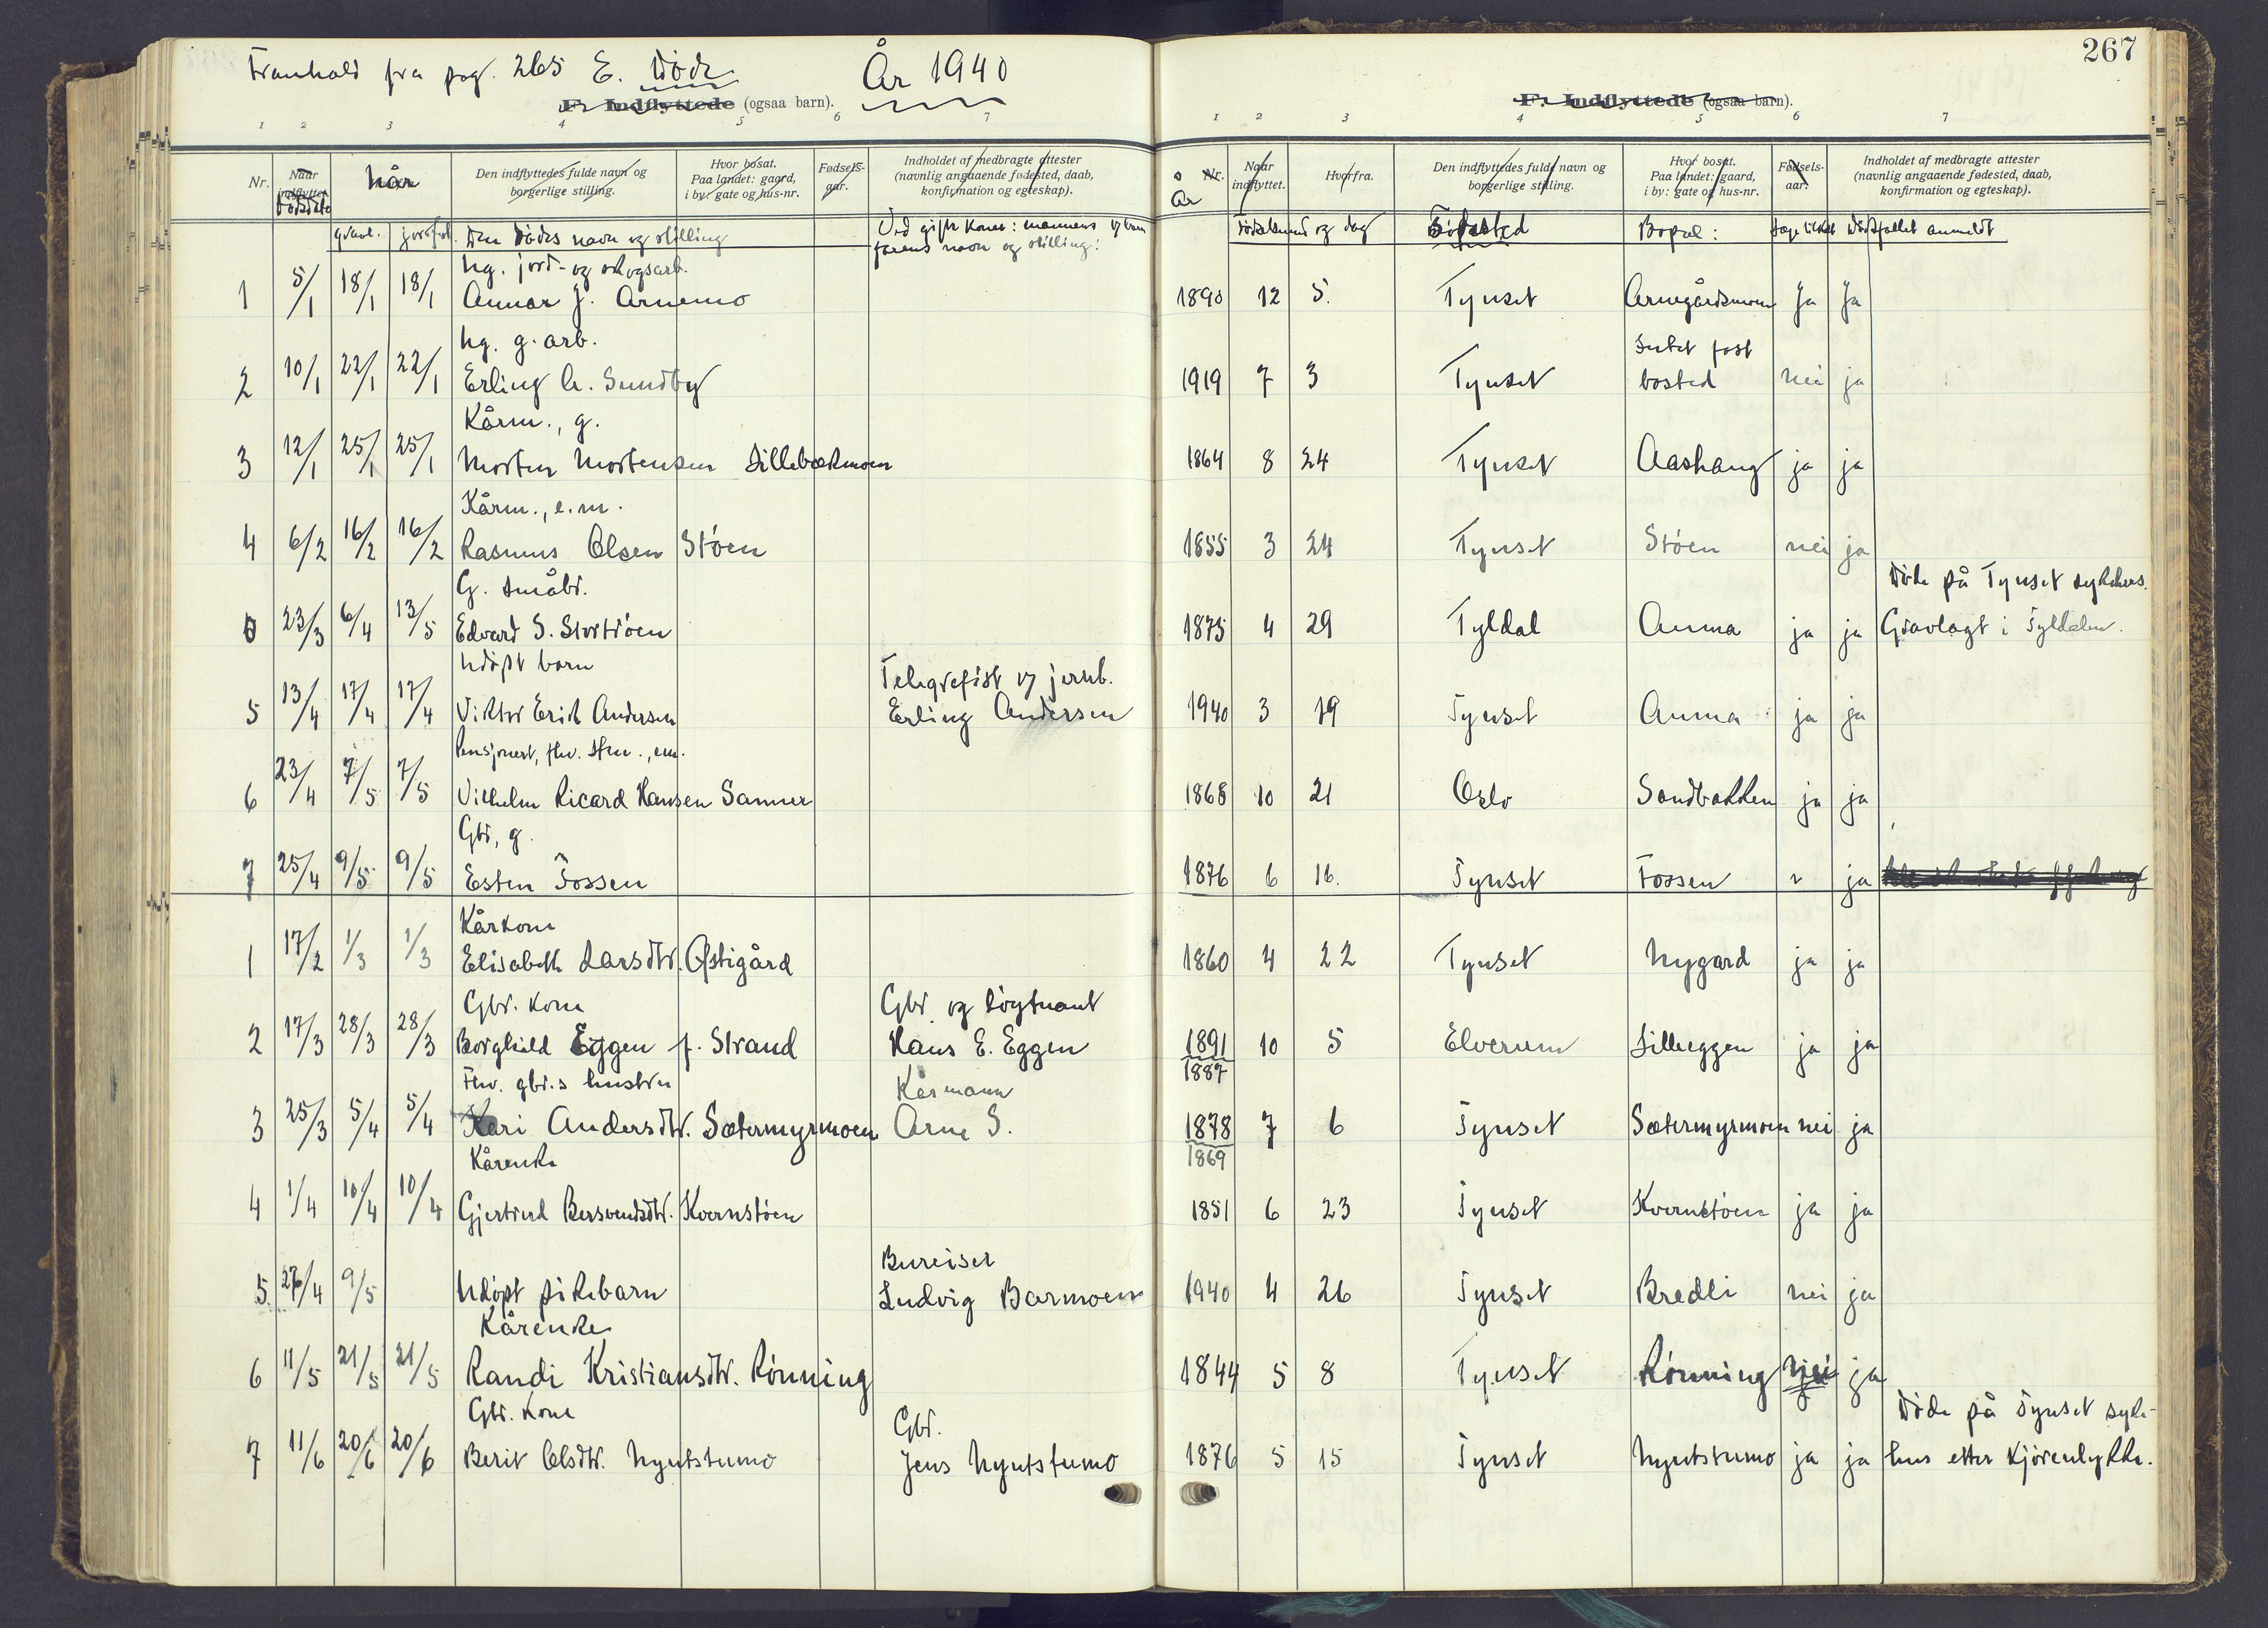 Framhald fra pag. 265 E. Døde År 1940
F. Indflyttede (ogsaa barn).
1 2 3 4 5 6 7
Nr. Naar indflyttet Dødsdato når Den indflyttedes fulde navn og borgerlige stilling. Hvor bosat. Paa landet: gaard, i by: gate og hus-nr. Fødsels-aar. Indholdet af medbragte attester (navnlig angaaende fødested, daab, konfirmation og egteskap).
gravl. jordf. Den dødes navn og stilling Ved gifte koner: mannens og barn farens navn og stilling:
Ug. jord- og skogsarb.
1 5/1 18/1 18/1 Annar J. Arnemo
Ug. g.arb.
2 10/1 22/1 22/1 Erling A. Sundby
Kårm., g.
3 12/1 25/1 25/1 Morten Mortensen Lillebækmoen
Kårm., e.m.
4 6/2 16/2 16/2 Rasmus Olsen Støen
G. småbr.
0 23/3 6/4 13/5 Edvard S. Stortrøen
Udøpt barn Telegrafist v jernb.
5 13/4 17/4 17/4 Viktor Erik Andersen Erling Andersen
Pensjonert, fhv. stm., em.
6 23/4 7/5 7/5 Vilhelm Ricard Hansen Sanner
Gbr, g.
7 25/4 9/5 9/5 Esten Fossen
Kårkone
1 17/2 1/3 1/3 Elisabeth Larsdtr. Østigård
Gbr. kone Gbr og løytnant
2 17/3 28/3 28/3 Borghild Eggen f. Strand Hans E. Eggen
Fhv. gbr.s hustru Kårmann
3 25/3 5/4 5/4 Kari Andersdtr. Sætermyrmoen Arne S.
Kårenke
4 1/4 10/4 10/4 Gjertrud Bersvendsdtr. Kvernstøen
Bureiser
5. 27/4 9/5 Udøpt pikebarn Ludvig Barmoen
Kårenke
6 11/5 21/5 21/5 Randi Kristiansdtr. Rønning
Gbr. kone Gbr.
7 11/6 20/6 20/6 Berit Olsdtr. Nyutstumo Jens Nyutstumo
267
F. Indflyttede (ogsaa barn).
1 2 3 4 5 6 7
Nr. År Naar indflyttet. Hvorfra. Den indflyttedes fulde navn og borgerlige stilling. Hvor bosat. Paa landet: gaard, i by: gate og hus-nr. Fødsels-aar. Indholdet af medbragte attester (navnlig angaaende fødested, daab, konfirmation og egteskap).
Fødselsmnd og dag Fødested Bopæl: Dødsfallet anmeldt
1890 12 5. Tynset Arnegårdsmoen Ja Ja
Intet fast
1919 7 3 Tynset bosted nei ja
1864 8 24 Tynset Aashaug ja ja
1855 3 24 Tynset Støen nei ja
Døde på Tynset sykehus.
1875 4 29 Tyldal Auma ja ja Gravlagt i Tyldalen.
1940 3 19 Tynset Auma ja ja
1868 10 21 Oslo Sandbakken ja ja
1876 6 16. Tynset Fossen ja
1860 4 22 Tynset Nygard ja ja
1891 10 5 Elverum Lilleeggen ja ja
1887
1878 7 6 Tynset Sætermyrmoen nei ja
1869
1851 6 23 Tynset Kvernstøen ja ja
1940 4 26 Tynset Bredli nei ja
1844 5 8 Tynset Rønning nei ja
Døde på Tynset syke-
1876 5 15 Tynset Nyutstumo ja ja hus etter kjøreulykke.